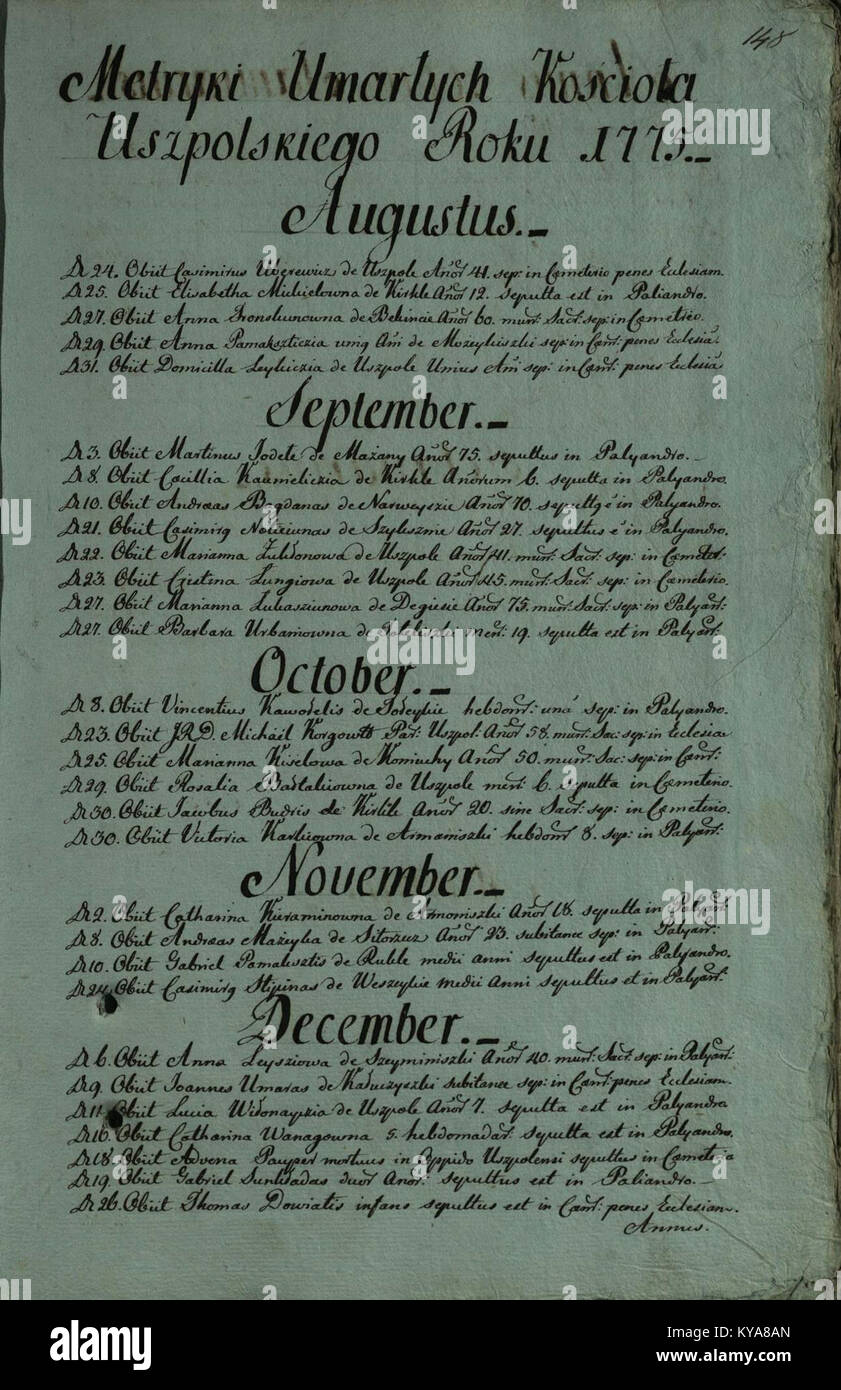 148
Metryki Umarłych Kościoła
Uszpolskiego Roku 1775.
Augustus.
D 24. Obiit Casimirus de Uszpole Añor 41. sep: in Cæmeterio penes Eclesiam.
D 25. Obiit Elisabetha Mickielowna de Kirkle Añor 12. sepulta est in Paliandro.
D 27. Obiit Anna de Bekincie Añor 60. mun: Sacr: sep: in Cæmetrio.
D 29. Obiit Anna de Mozeykiszki sep: in Cæm: penes Eclesia
D 31. Obiit Domicilla Leykiczia de Uszpole Unius Añi sep: in Cæm: penes Eclesia
September.
D 3. Obiit Martinus Jodele de Mażany Añor 75. sepultus in Palyandro.
D 8. Obiit Cæcillia Kaumieliczia de Kirkle Añorum 6. sepulta in Palyandro.
D 10. Obiit Andreas Bogdanas de Narweyszie Añor 70. in Palyandro.
D 21. Obiit Casimirg de Añor 27. sepultus é in Palyandro.
D 22. Obiit Marianna de Uszpole Añor 41. mun: Sacr: sep: in Cæmeter:
D 23. Obiit Lungiowa de Uszpole Añor 45. mun: Sacr: sep: in Cæmeterio.
D 27. Obiit Marianna Lukasziunowa de Degiesie Añor 75. mun: Sacr: sep: in Palyan:
D 27. Obiit Barbara Urbanowna de men: 19. sepulta est in Palyan:
October.
D 8. Obiit Vincentius Kawodelis de hebdom: una sep: in Palyandro.
D 23. Obiit J.R.D. Michail Korgowtt Par: Uszpol: Añor 58. mun: Sac: sep: in Eclesia
D 25. Obiit Marianna Kiselowa de Koniuchy Añor 50. mun: Sac: sep: in Cæm:
D 29. Obiit Rosalia de Uszpole men: 6. sepulta in Cæmeterio.
D 30. Obiit Jacobus Budris de Kirkle Añor 20. sine Sacr: sep: in Cæmeterio.
D 30. Obiit Victoria de Armaniszki hebdom 8. sep: in Palyan:
November.
D 2. Obiit Catharina Kuraminowna de Armoniszki Añor 18. sepulta in Palyan:
D 8. Obiit Andreas Mażeyka de Añor 23. subitanee sep: in Palyan:
D 10. Obiit Gabriel de Rukle medii anni sepultus est in Palyandro.
D 24. Obiit Casimirg Stipinas de Weszeykie medii Anni sepultus et in Palyan:
December.
D 6. Obiit Anna Leysziowa de Szeyminiszki Añor 40. mun: Sacr: sep: in Palyan:
D 9. Obiit Joannes Umaras de subitanee sep: in Cæm: penes Eclesiam.
D 11. Obiit Lucia de Uszpole Añor 7. sepulta est in Palyandro
D 16. Obiit Catharina Wanagowna 5. hebdomadar: sepulta est in Palyandro.
D 18. Obiit Advena Pauper mortuus in Oppido Uszpolensi sepultus in Cæmeteria
D 19. Obiit Gabriel duor Anor: sepultus est in Paliandro.
D 26. Obiit Thomas Dowiatis infans sepultus est in Cæm: penes Ecclesiam.
Annus.
alamy
alamy
Image ID: KYA8AN
www.alamy.com